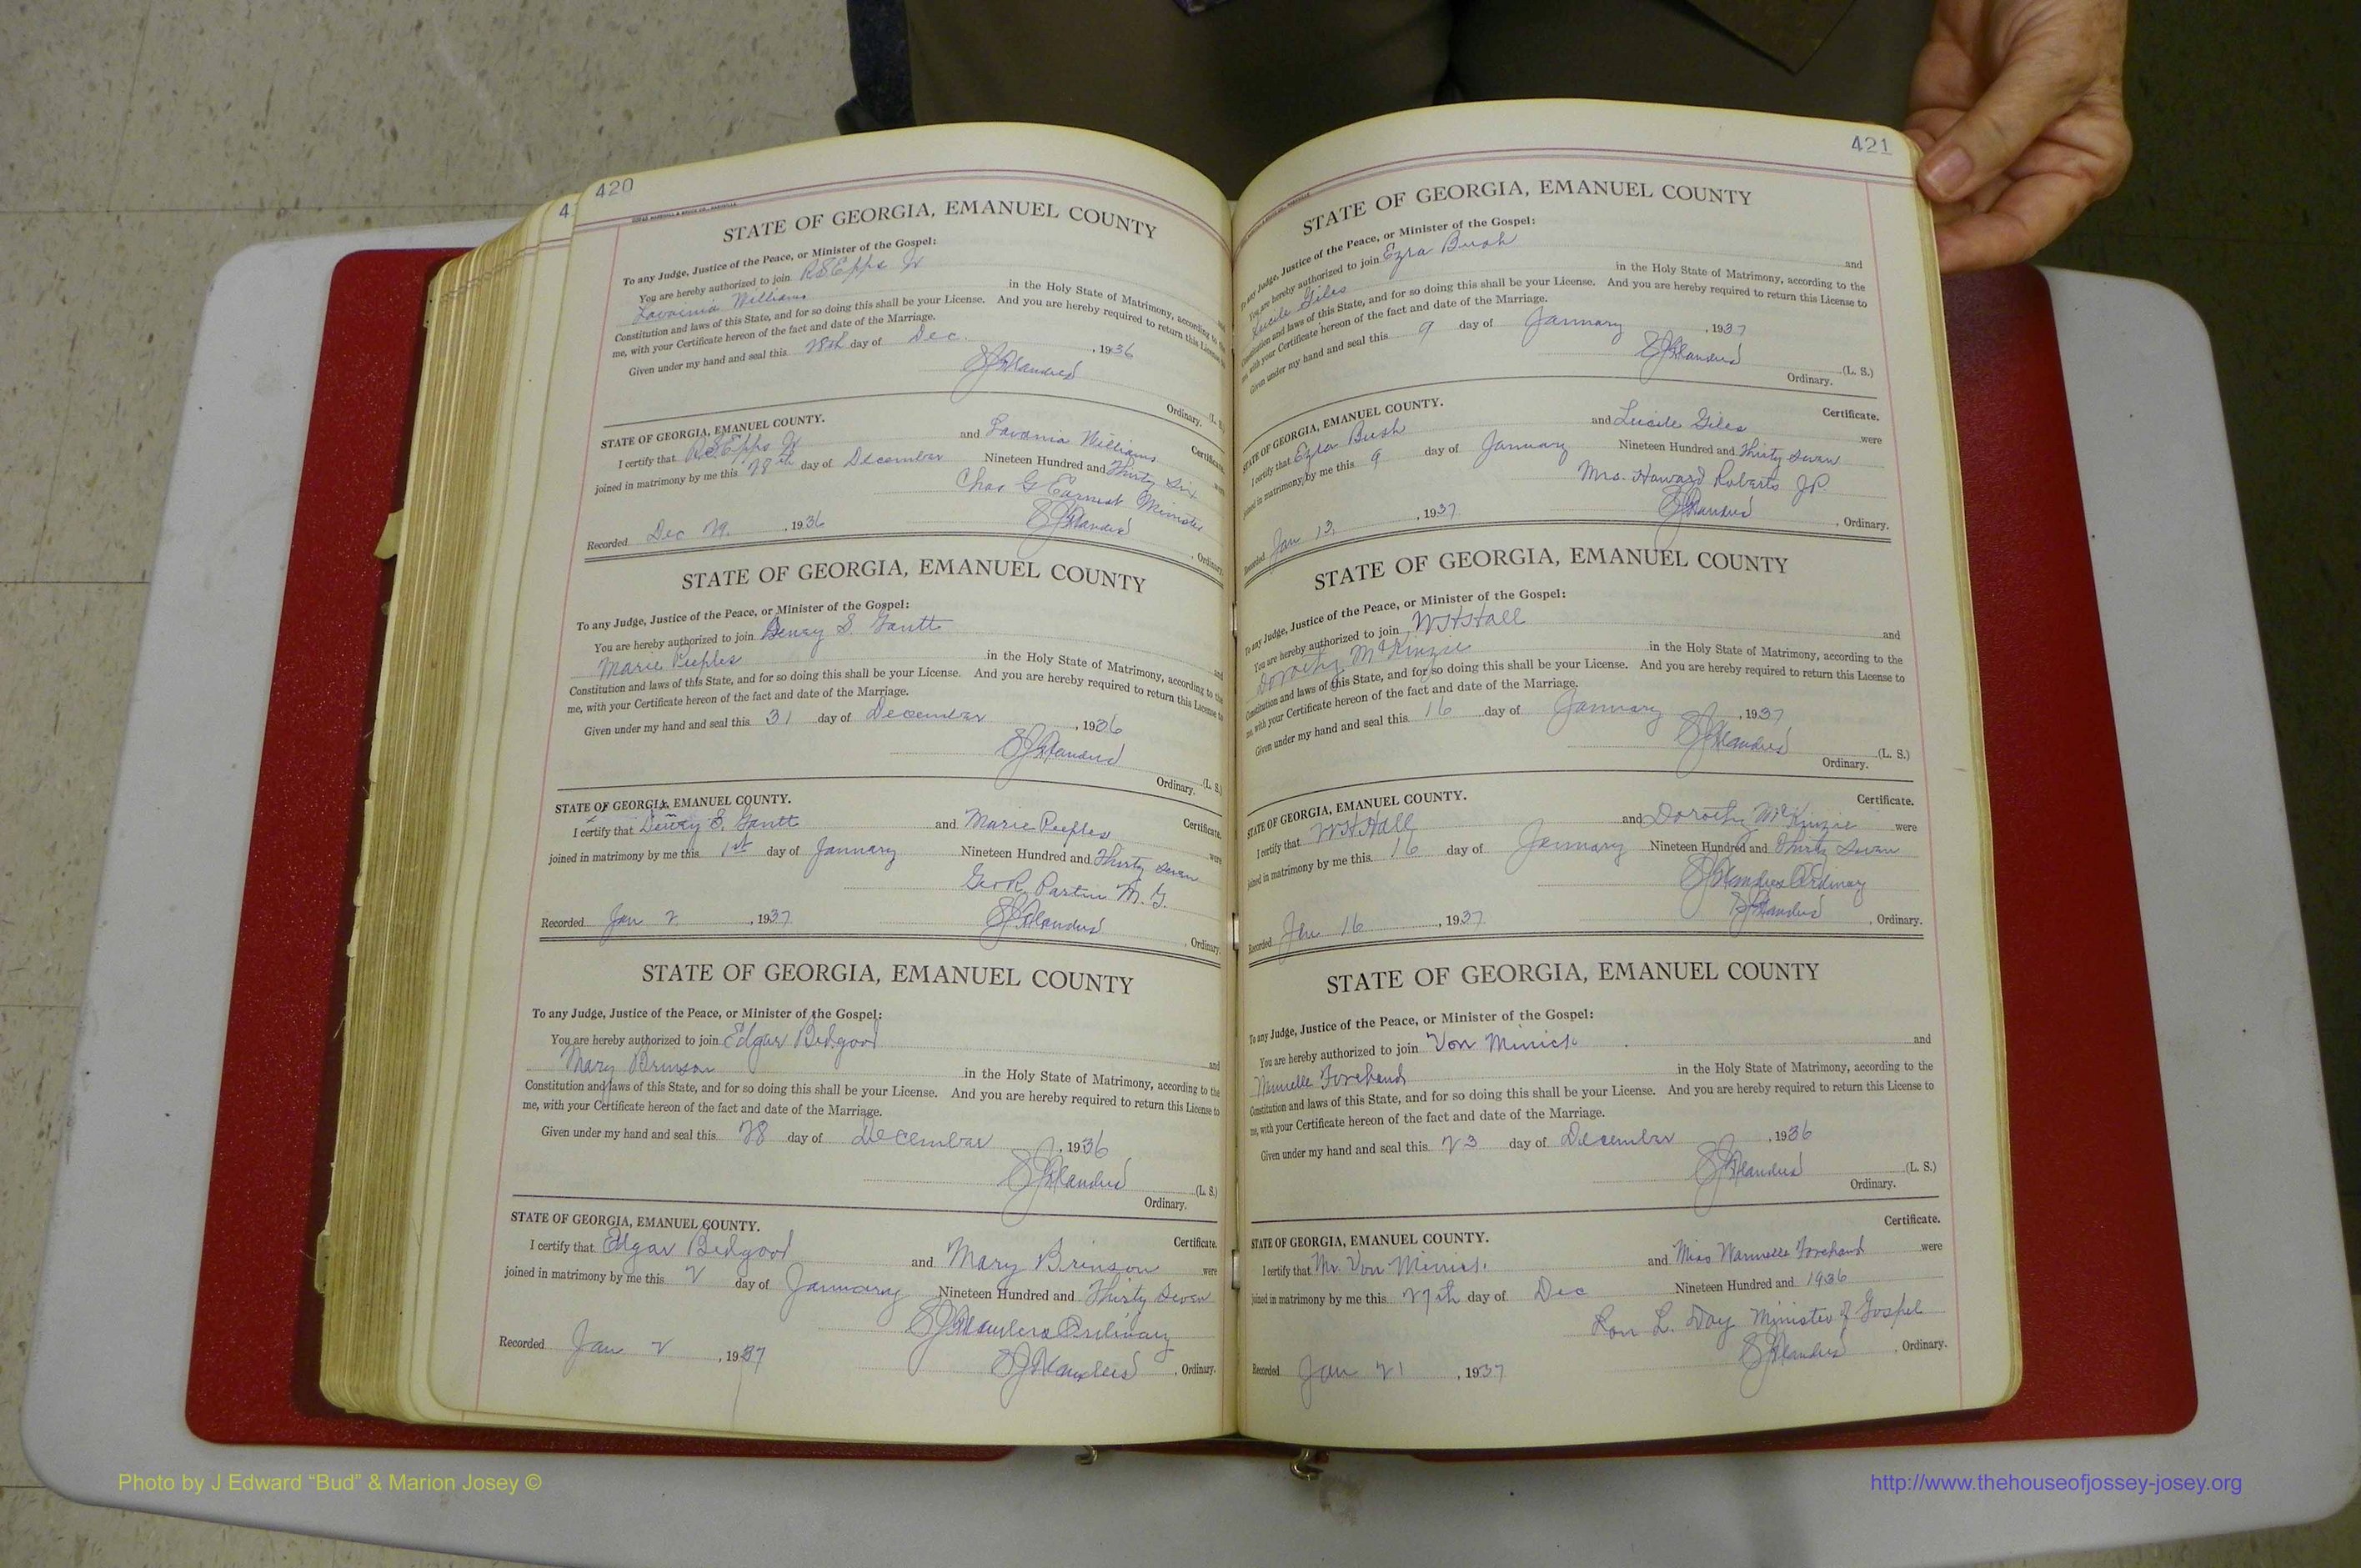 420
STATE OF GEORGIA, EMANUEL COUNTY
To any Judge, Justice of the Peace, or Minister of the Gospel:
You are hereby authorized to join R S Epps Jr
and
Lavainia Williams in the Holy State of Matrimony, according to the
Constitution and laws of this State, and for so doing this shall be your License. And you are hereby required to return this License
me, with your Certificate hereon of the fact and date of the Marriage.
Given under my hand and seal this 28th day of Dec. , 1936
(L. S.)
Ordinary.
STATE OF GEORGIA, EMANUEL COUNTY.
Certificate.
I certify that R S Epps Jr and Lavania Williams were
joined in matrimony by me this 28th day of December Nineteen Hundred and Thirty Six
Chas G Earnest Minister
Recorded Dec 29. , 1936
, Ordinary.
STATE OF GEORGIA, EMANUEL COUNTY
To any Judge, Justice of the Peace, or Minister of the Gospel:
You are hereby authorized to join S. Gantt
and
Marie Peeples in the Holy State of Matrimony, according to the
Constitution and laws of this State, and for so doing this shall be your License. And you are hereby required to return this License to
me, with your Certificate hereon of the fact and date of the Marriage.
Given under my hand and seal this 31 day of December , 1936
(L. S.)
Ordinary.
STATE OF GEORGIA, EMANUEL COUNTY.
Certificate.
I certify that Gantt and Marie Peeples were
joined in matrimony by me this 1st day of January Nineteen Hundred and Thirty Seven
Geo R Partin M. G.
Recorded Jan 2 , 1937
, Ordinary.
STATE OF GEORGIA, EMANUEL COUNTY
To any Judge, Justice of the Peace, or Minister of the Gospel:
You are hereby authorized to join Edgar Bedgood
and
Mary Brinson in the Holy State of Matrimony, according to the
Constitution and laws of this State, and for so doing this shall be your License. And you are hereby required to return this License to
me, with your Certificate hereon of the fact and date of the Marriage.
Given under my hand and seal this 28 day of December , 1936
(L. S.)
Ordinary.
STATE OF GEORGIA, EMANUEL COUNTY.
Certificate.
I certify that Edgar Bedgood and Mary Brinson were
joined in matrimony by me this 2 day of January Nineteen Hundred and Thirty Seven
Ordinary
Recorded Jan 2 , 1937
, Ordinary.
421
STATE OF GEORGIA, EMANUEL COUNTY
To any Judge, Justice of the Peace, or Minister of the Gospel:
You are hereby authorized to join Ezra Bush
and
Lucile Giles in the Holy State of Matrimony, according to the
Constitution and laws of this State, and for so doing this shall be your License. And you are hereby required to return this License to
me, with your Certificate hereon of the fact and date of the Marriage.
Given under my hand and seal this 9 day of January , 1937
(L. S.)
Ordinary.
STATE OF GEORGIA, EMANUEL COUNTY.
Certificate.
I certify that Ezra Bush and Lucile Giles were
joined in matrimony by me this 9 day of January Nineteen Hundred and Thirty Seven
Mrs. Howard Roberts J.P.
Recorded Jan 13, , 1937
, Ordinary.
STATE OF GEORGIA, EMANUEL COUNTY
To any Judge, Justice of the Peace, or Minister of the Gospel:
You are hereby authorized to join W H Hall
and
Dorothy McKinzie in the Holy State of Matrimony, according to the
Constitution and laws of this State, and for so doing this shall be your License. And you are hereby required to return this License to
me, with your Certificate hereon of the fact and date of the Marriage.
Given under my hand and seal this 16 day of January , 1937
(L. S.)
Ordinary.
STATE OF GEORGIA, EMANUEL COUNTY.
Certificate.
I certify that W H Hall and Dorothy McKinzie were
joined in matrimony by me this 16 day of January Nineteen Hundred and Thirty Seven
Ordinary
Recorded Jan 16 , 1937
, Ordinary.
STATE OF GEORGIA, EMANUEL COUNTY
To any Judge, Justice of the Peace, or Minister of the Gospel:
You are hereby authorized to join Von Minick
and
Forehand in the Holy State of Matrimony, according to the
Constitution and laws of this State, and for so doing this shall be your License. And you are hereby required to return this License to
me, with your Certificate hereon of the fact and date of the Marriage.
Given under my hand and seal this 23 day of December , 1936
(L. S.)
Ordinary.
STATE OF GEORGIA, EMANUEL COUNTY.
Certificate.
I certify that Mr. Von Minick and Miss Forehand were
joined in matrimony by me this 27th day of Dec Nineteen Hundred and 1936
Ron L. Day Minister of Gospel
Recorded Jan 21 , 1937
, Ordinary.
Photo by J Edward “Bud” & Marion Josey ©
http://www.thehouseofjossey-josey.org